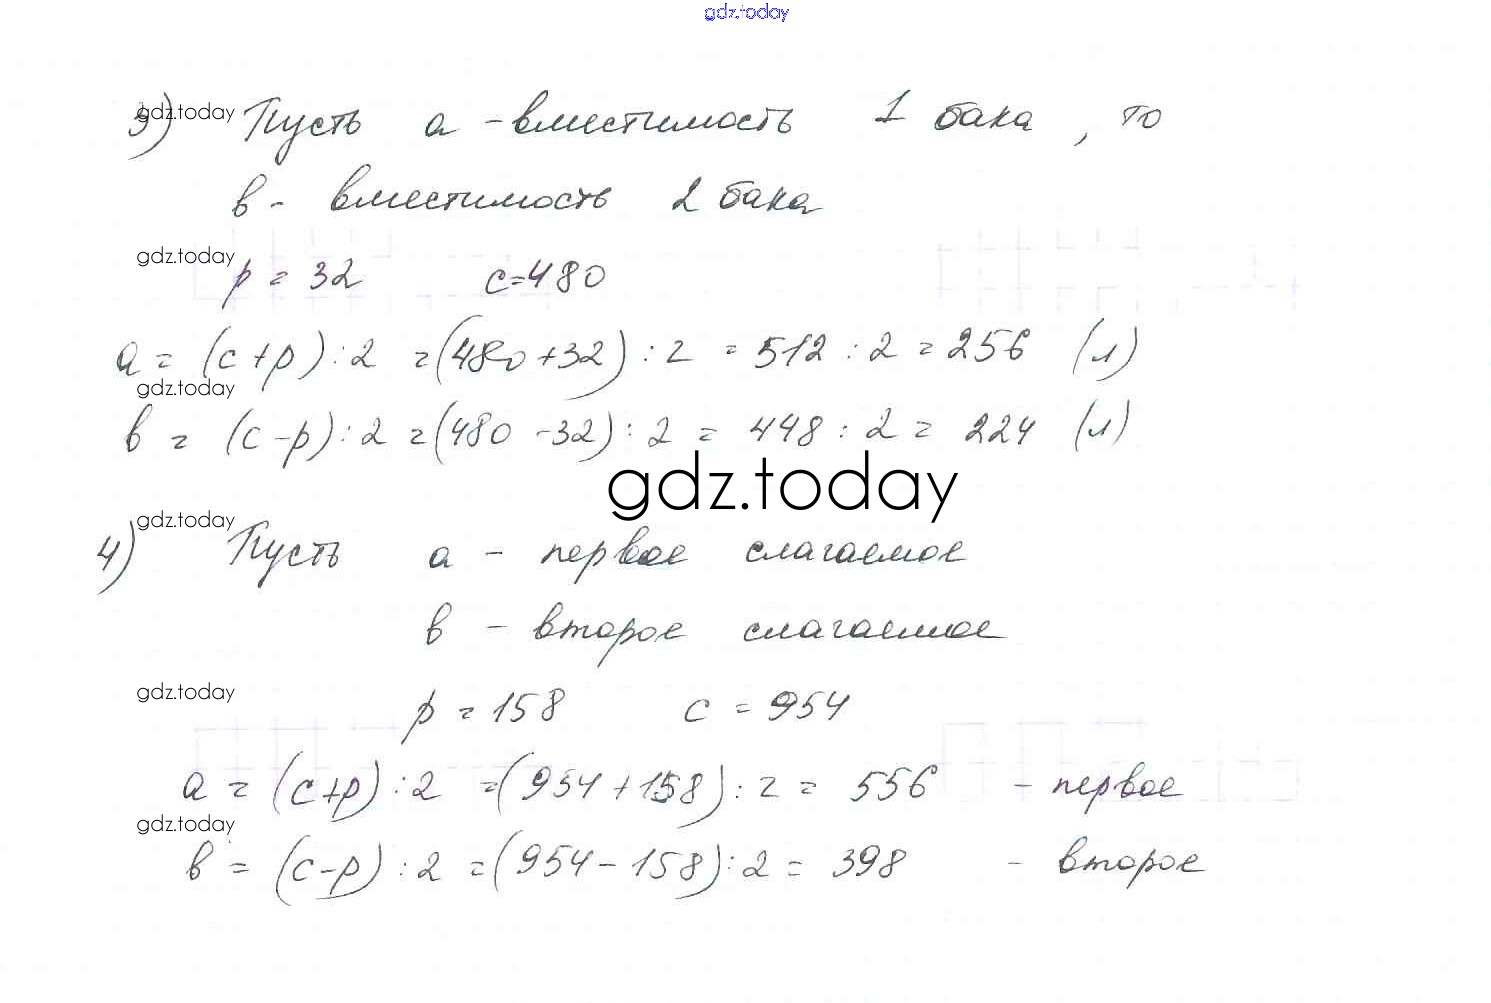 gdz.today
gdz.today
3) Пусть а - вместимость 1 бака, то
в - вместимость 2 бака
gdz.today
p = 32 c = 480
a = (c + p) : 2 = (480 + 32) : 2 = 512 : 2 = 256 (л)
gdz.today
в = (c - p) : 2 = (480 - 32) : 2 = 448 : 2 = 224 (л)
gdz.today
gdz.today
4) Пусть а - первое слагаемое
в - второе слагаемое
gdz.today
p = 158 c = 954
a = (c + p) : 2 = (954 + 158) : 2 = 556 - первое
gdz.today
в = (c - p) : 2 = (954 - 158) : 2 = 398 - второе